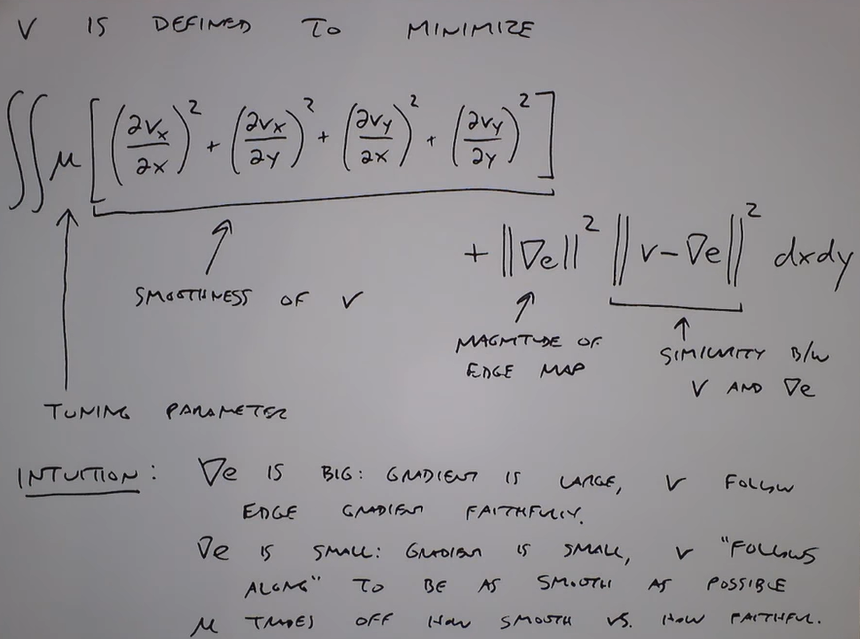 V IS DEFINED TO MINIMIZE
∬ μ [ (∂Vx/∂x)² + (∂Vx/∂y)² + (∂Vy/∂x)² + (∂Vy/∂y)² ]
+ ||∇e||² ||V-∇e||² dxdy
SMOOTHNESS OF V
MAGNITUDE OF
EDGE MAP
SIMILARITY B/W
V AND ∇e
TUNING PARAMETER
INTUITION: ∇e IS BIG: GRADIENT IS LARGE, V FOLLOW
EDGE GRADIENT FAITHFULLY.
∇e IS SMALL: GRADIENT IS SMALL, V "FOLLOWS
ALONG" TO BE AS SMOOTH AS POSSIBLE
μ TRADES OFF HOW SMOOTH VS. HOW FAITHFUL.